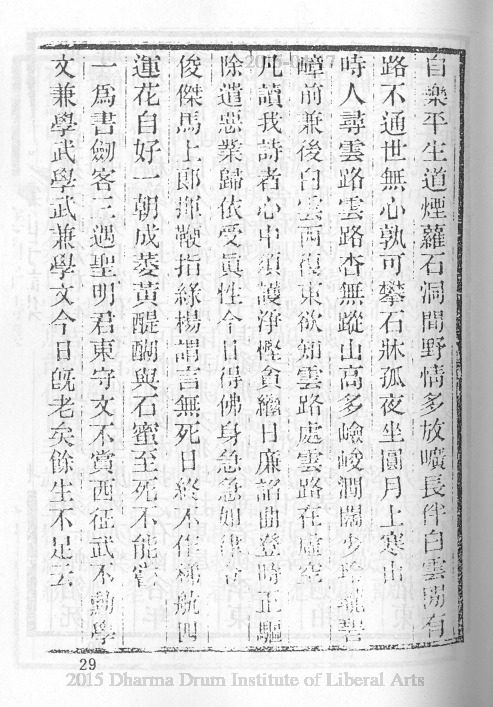 自樂平生道煙蘿石洞間野情多放曠長伴白雲閒有
路不通世無心孰可攀石牀孤夜坐圓月上寒山
時人尋雲路雲路杳無蹤山高多嶮峻澗闊少玲瓏碧
嶂前兼後白雲西復東欲知雲路處雲路在虛空
凡讀我詩者心中須護淨慳貪繼日廉諂曲登時正驅
除遣惡業歸依受眞性今日得佛身急急如律令
俊傑馬上郎揮鞭指綠楊謂言無死日終不作梯航四
運花自好一朝成萎黃醍醐與石蜜至死不能嘗
一爲書劍客三遇聖明君東守文不賞西征武不勳學
文兼學武學武兼學文今日旣老矣餘生不足云
29
2015 Dharma Drum Institute of Liberal Arts